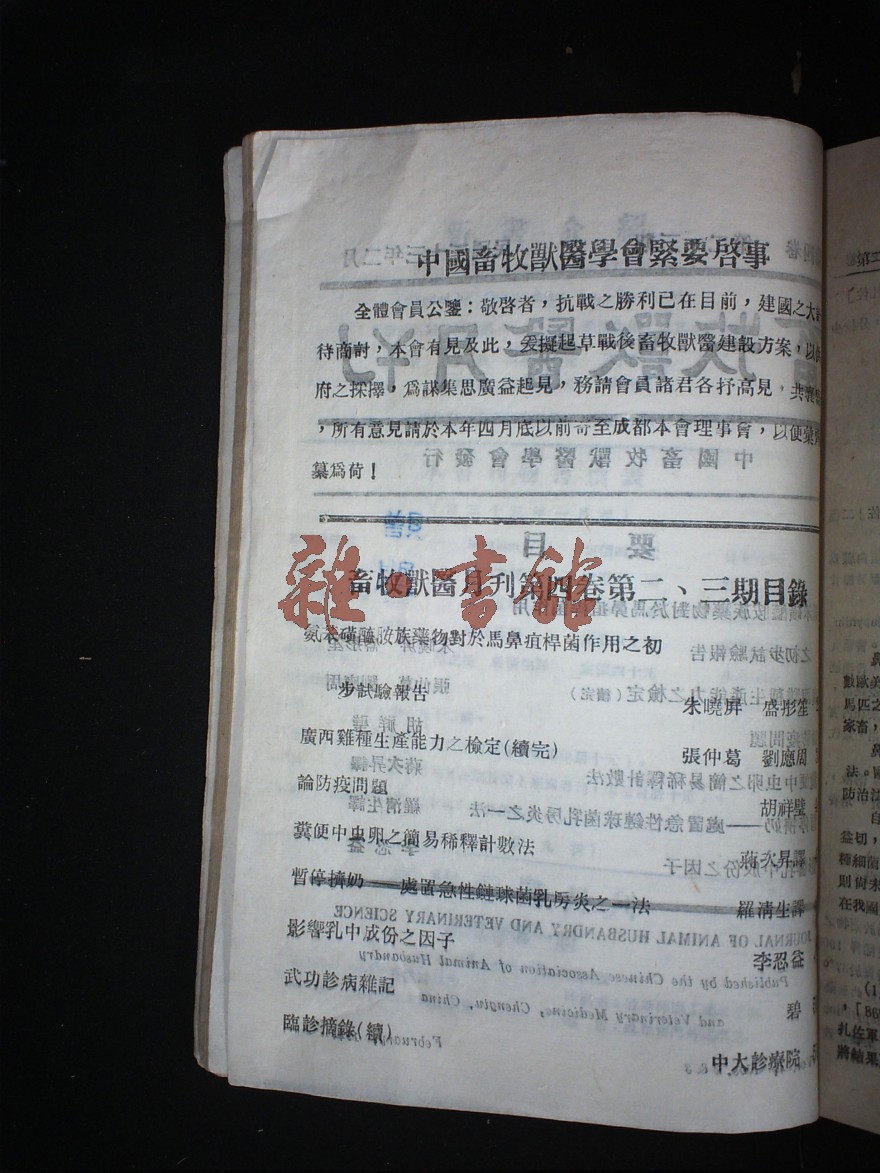 中國畜牧獸醫學會緊要啓事
全體會員公鑒：敬啓者，抗戰之勝利已在目前，建國之大
待商討，本會有見及此，爰擬起草戰後畜牧獸醫建設方案，以
府之採擇，爲謀集思廣益起見，務請會員諸君各抒高見，共襄
，所有意見請於本年四月底以前寄至成都本會理事會，以便彙
纂爲荷！
畜牧獸醫月刊第四卷第二、三期目錄
氨苯磺醯胺族藥物對於馬鼻疽桿菌作用之初
步試驗報告 朱曉屏 盛彤笙
廣西雞種生產能力之檢定(續完) 張仲葛 鄧應周
論防疫問題 胡祥璧
糞便中虫卵之簡易稀釋計數法 蔣次昇譯
暫停擠奶——處置急性鏈球菌乳房炎之一法 羅清生譯
影響乳中成份之因子 李忍益
武功診病雜記 碧
臨診摘錄(續) 中大診療院
雜·書館